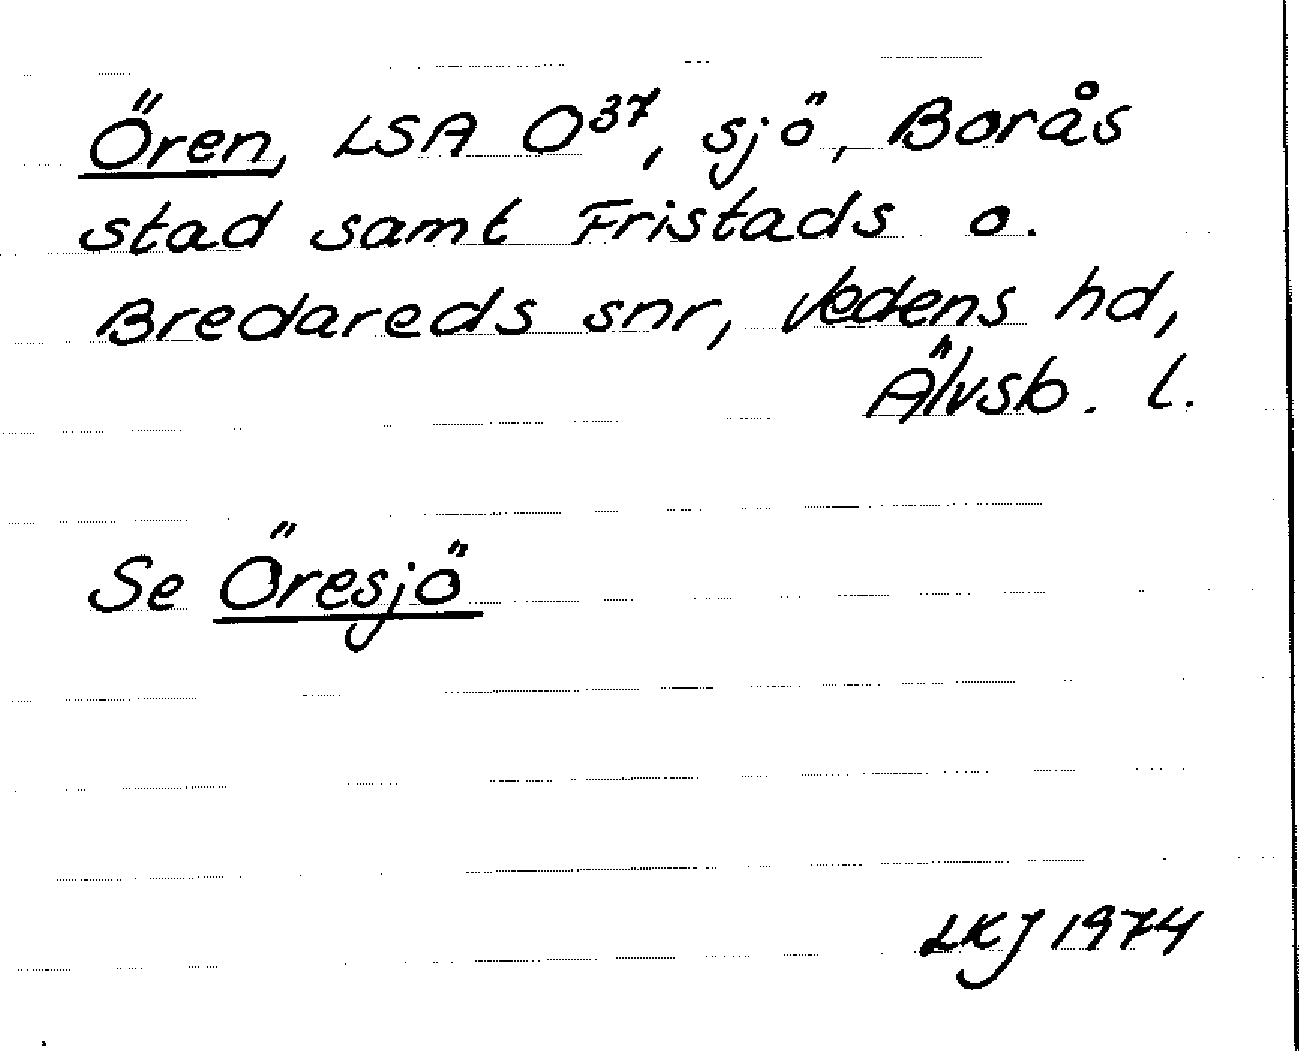 Ören, LSA O37, sjö, Borås
stad samt Fristads o.
Bredareds snr, Vedens hd,
Älvsb. l.
Se Öresjö
LKJ 1974